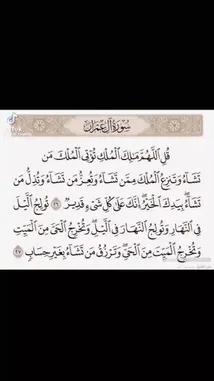 سُورَةُ آلِ عِمْرَان
قُلِ اللَّهُمَّ مَالِكَ الْمُلْكِ تُؤْتِي الْمُلْكَ مَن
تَشَاءُ وَتَنزِعُ الْمُلْكَ مِمَّن تَشَاءُ وَتُعِزُّ مَن تَشَاءُ وَتُذِلُّ مَن
تَشَاءُ بِيَدِكَ الْخَيْرُ إِنَّكَ عَلَىٰ كُلِّ شَيْءٍ قَدِيرٌ ٢٦ تُولِجُ اللَّيْلَ
فِي النَّهَارِ وَتُولِجُ النَّهَارَ فِي اللَّيْلِ وَتُخْرِجُ الْحَيَّ مِنَ الْمَيِّتِ
وَتُخْرِجُ الْمَيِّتَ مِنَ الْحَيِّ وَتَرْزُقُ مَن تَشَاءُ بِغَيْرِ حِسَابٍ ٢٧